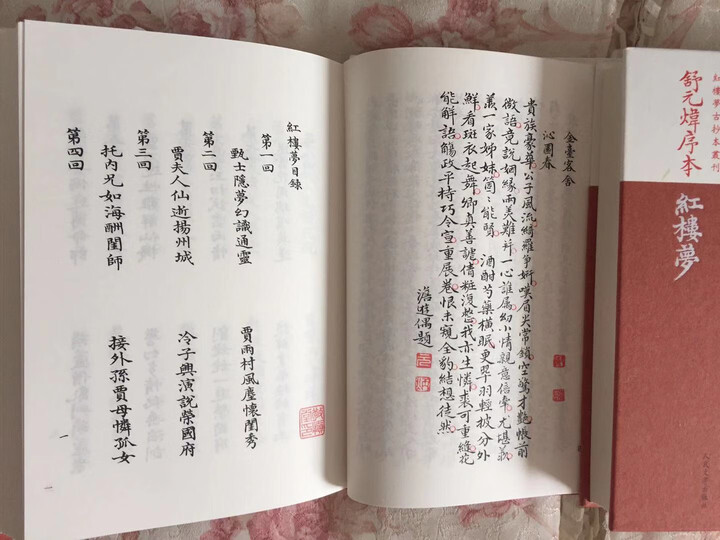 金臺客舍
沁園春
貴族豪華公子風流綺羅爭妍嘆眉尖常鎖空勞才艷帳前
微語竞說姻緣兩美難并一心誰屬幼小情親意倍牽尤堪羨
羨一家姊妹箇〻能賢 酒酣芍藥橫眠更翠羽輕披分外
鮮看斑衣起舞卿真善謔借粧漫憨我亦生憐裘可重縫花
能解語觴政平持巧令宣重展卷恨未窺全豹結想徒然
澹遊偶題
紅樓夢目錄
第一回
甄士隱夢幻識通靈 賈雨村風塵懷閨秀
第二回
賈夫人仙逝揚州城 冷子興演說榮國府
第三回
托內兄如海酬閨師 接外孫賈母憐孤女
第四回
一
紅樓夢古抄本叢刊
舒元煒序本
紅樓夢
人民文学出版社